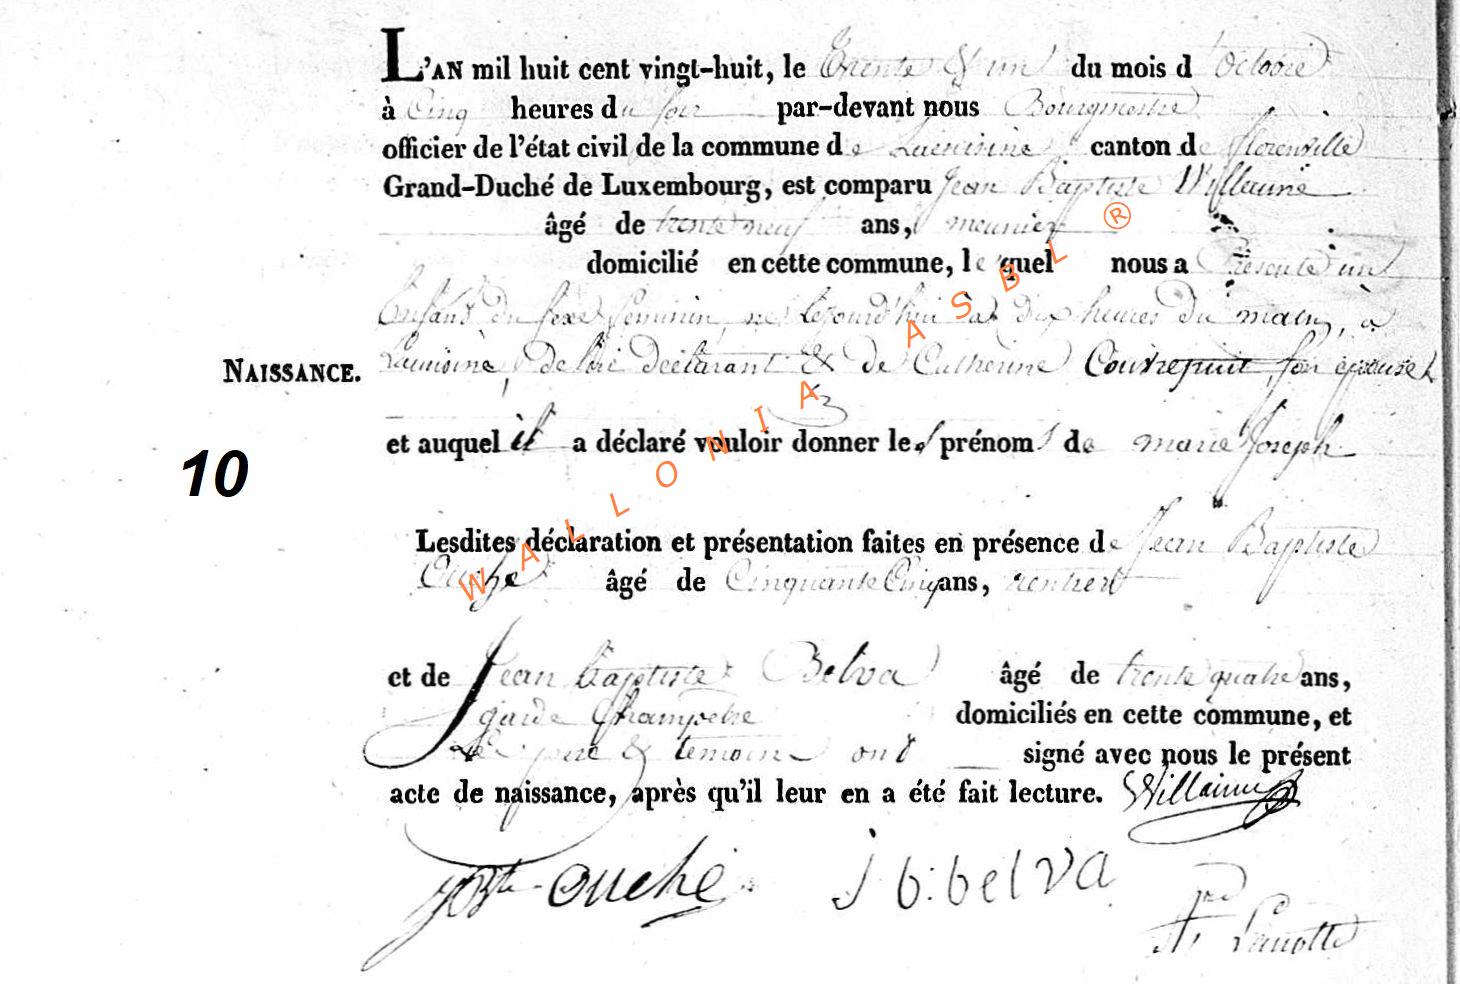 L'AN mil huit cent vingt-huit, le Trente & un du mois d'Octobre
à Cinq heures du soir par-devant nous Bourgmestre
officier de l'état civil de la commune de Lacuisine canton de florenville
Grand-Duché de Luxembourg, est comparu Jean Baptiste Willaume
âgé de trente neuf ans, meunier
domicilié en cette commune, lequel nous a Présenté un
Enfant du sexe féminin, né cejourd'hui à dix heures du matin, à
Lacuisine, de lui déclarant & de Catherine son épouse
NAISSANCE.
et auquel il a déclaré vouloir donner les prénoms de marie Joseph
10
Lesdites déclaration et présentation faites en présence de Jean Baptiste
Ouche âgé de Cinquante Cinq ans, rentier
et de Jean baptiste Belva âgé de trente quatre ans,
garde Champetre domiciliés en cette commune, et
Le père & temoins ont signé avec nous le présent
acte de naissance, après qu'il leur en a été fait lecture. Willaume
ouche j b: belva
WALLONIA ASBL ®